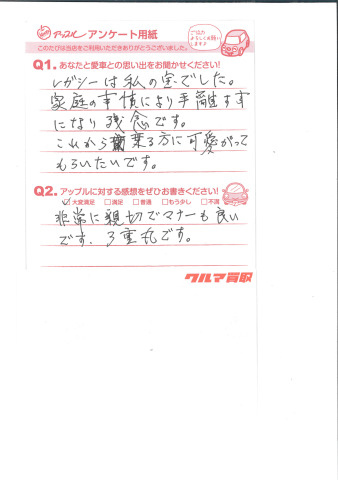 アップル アンケート用紙
このたびは当店をご利用いただきありがとうございました。
Q1. あなたと愛車との思い出をお聞かせください!
レガシーは私の宝でした。
家庭の事情により手離す事
になり残念です。
これから乗る方に可愛がって
もらいたいです。
Q2. アップルに対する感想をぜひお書きください!
☑大変満足 □満足 □普通 □もう少し □不満
非常に親切でマナーも良い
です。3重丸です。
クルマ買取